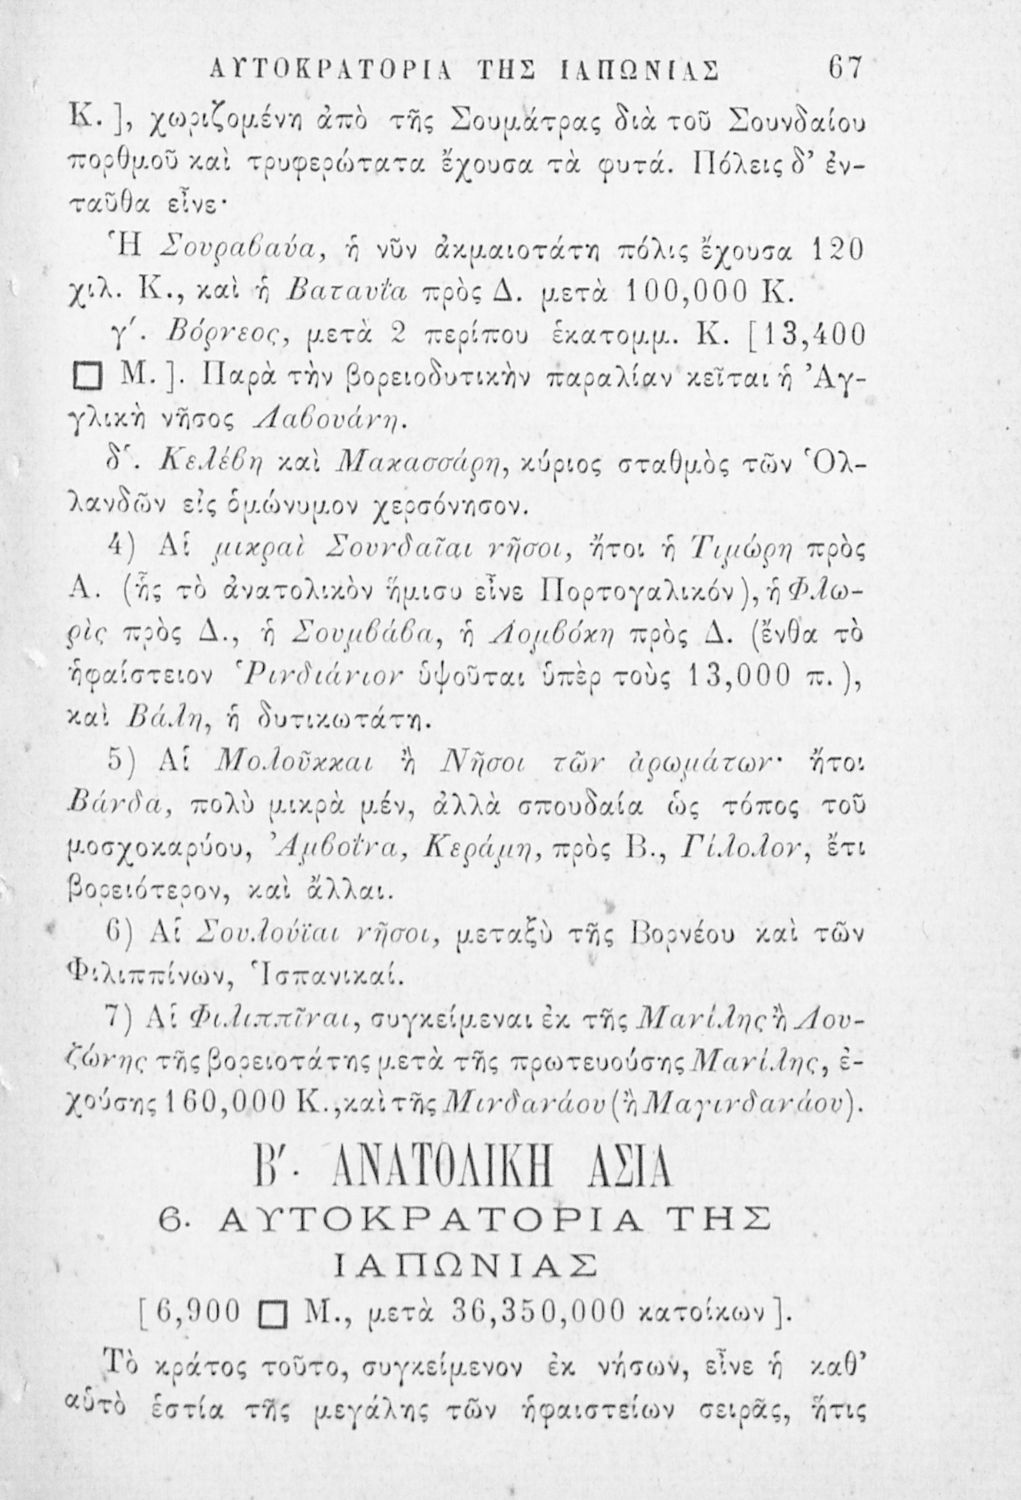 ΑΥΤΟΚΡΑΤΟΡΙΑ ΤΗΣ ΙΑΠΩΝΙΑΣ 67
Κ. ], χωριζομένη ἀπὸ τῆς Σουμάτρας διὰ τοῦ Σουνδαίου
πορθμοῦ καὶ τρυφερώτατα ἔχουσα τὰ φυτά. Πόλεις δ’ ἐν-
ταῦθα εἶνε·
Ἡ Σουραβαύα, ἡ νῦν ἀκμαιοτάτη πόλις ἔχουσα 120
χιλ. Κ., καὶ ἡ Βαταυΐα πρὸς Δ. μετὰ 100,000 Κ.
γ΄. Βόρνεος, μετὰ 2 περίπου ἑκατομμ. Κ. [13,400
□ Μ.]. Παρὰ τὴν βορειοδυτικὴν παραλίαν κεῖται ἡ Ἀγ-
γλικὴ νῆσος Λαβουάνη.
δ΄. Κελέβη καὶ Μακασσάρη, κύριος σταθμὸς τῶν Ὁλ-
λανδῶν εἰς ὁμώνυμον χερσόνησον.
4) Αἱ μικραὶ Σουνδαῖαι νῆσοι, ἤτοι ἡ Τιμώρη πρὸς
Α. (ἧς τὸ ἀνατολικὸν ἥμισυ εἶνε Πορτογαλικόν), ἡ Φλω-
ρὶς πρὸς Δ., ἡ Σουμβάβα, ἡ Λομβόκη πρὸς Δ. (ἔνθα τὸ
ἡφαίστειον Ῥινδιάνιον ὑψοῦται ὑπὲρ τοὺς 13,000 π.),
καὶ Βάλη, ἡ δυτικωτάτη.
5) Αἱ Μολοῦκκαι ἢ Νῆσοι τῶν ἀρωμάτων· ἤτοι
Βάνδα, πολὺ μικρὰ μέν, ἀλλὰ σπουδαία ὡς τόπος τοῦ
μοσχοκαρύου, Ἀμβοΐνα, Κεράμη, πρὸς Β., Γίλολον, ἔτι
βορειότερον, καὶ ἄλλαι.
6) Αἱ Σουλούϊαι νῆσοι, μεταξὺ τῆς Βορνέου καὶ τῶν
Φιλιππίνων, Ἱσπανικαί.
7) Αἱ Φιλιππῖναι, συγκείμεναι ἐκ τῆς Μανίλης ἢ Λου-
ζώνης τῆς βορειοτάτης μετὰ τῆς πρωτευούσης Μανίλης, ἐ-
χούσης 160,000 Κ., καὶ τῆς Μινδανάου (ἢ Μαγινδανάου).
Β΄. ΑΝΑΤΟΛΙΚΗ ΑΣΙΑ
6. ΑΥΤΟΚΡΑΤΟΡΙΑ ΤΗΣ
ΙΑΠΩΝΙΑΣ
[6,900 □ Μ., μετὰ 36,350,000 κατοίκων].
Τὸ κράτος τοῦτο, συγκείμενον ἐκ νήσων, εἶνε ἡ καθ’
αὑτὸ ἑστία τῆς μεγάλης τῶν ἡφαιστείων σειρᾶς, ἥτις